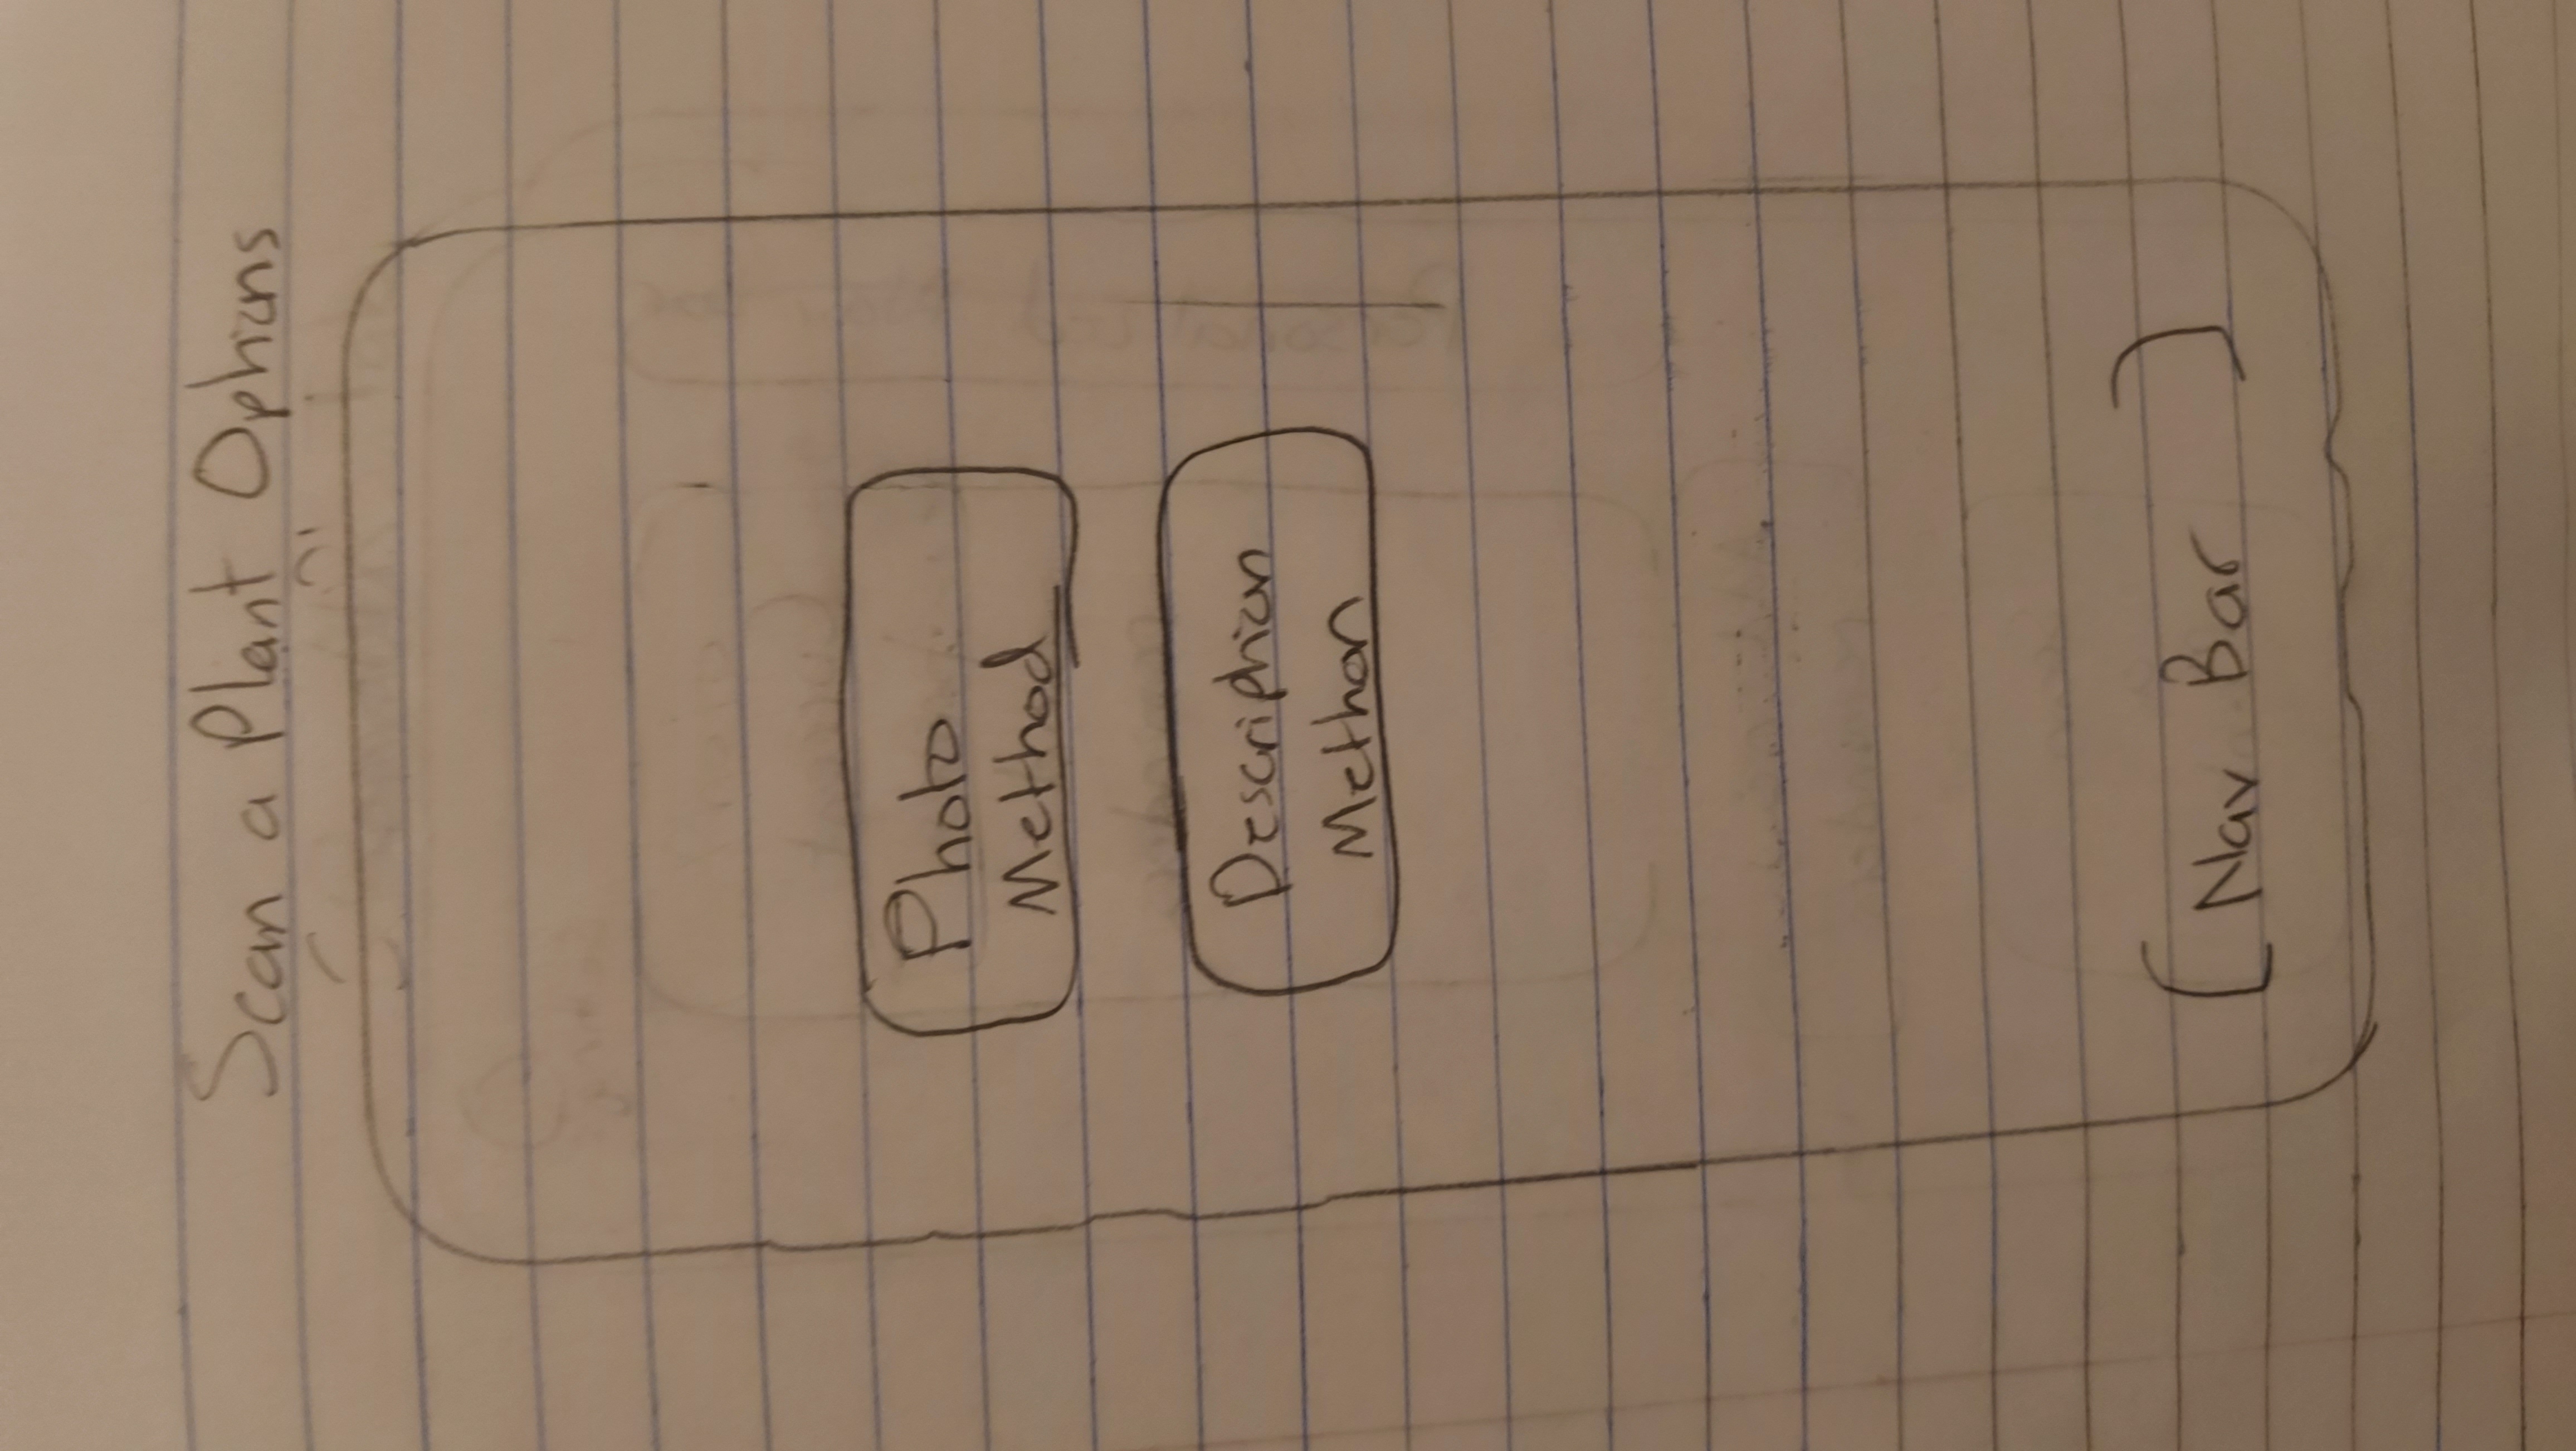 Scan a Plant Options
Photo
Method
Description
Methon
[ Nav Bar ]